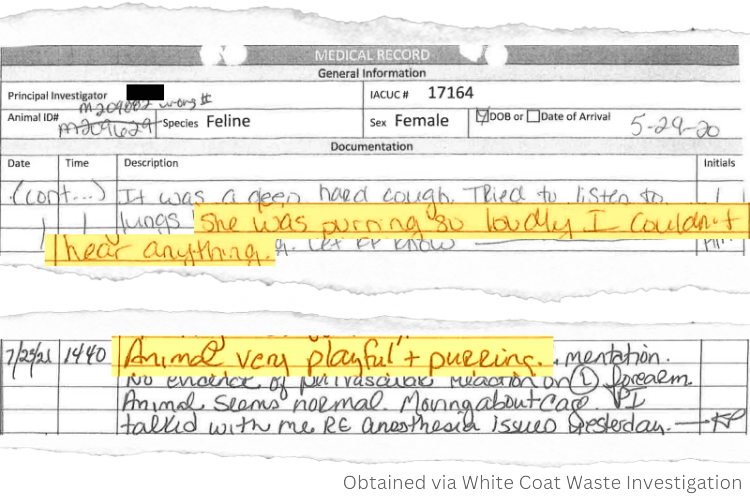 MEDICAL RECORD
General Information
Principal Investigator
IACUC # 17164
m209682 wrong #
Animal ID# m209629 Species Feline Sex Female DOB or Date of Arrival 5-29-20
Documentation
Date Time Description Initials
(cont...) It was a deep hard cough. Tried to listen to
lungs she was purring so loudly I couldn't
hear anything. Let know
7/23/21 1440 Animal very playful + purring. mentation.
No evidence of perivascular reaction on (L) forearm.
Animal seems normal. Moving about cage. PI
talked with me RE anesthesia issues yesterday. KP
Obtained via White Coat Waste Investigation